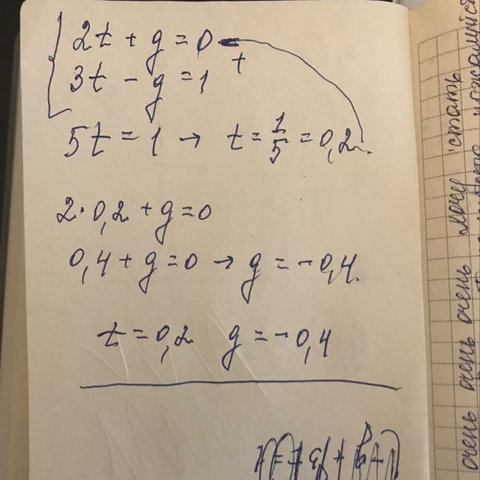 2t + g = 0
3t - g = 1 +
5t = 1 → t = 1/5 = 0,2
2·0,2 + g = 0
0,4 + g = 0 → g = -0,4
t = 0,2 g = -0,4
очень очень очень хочу стать